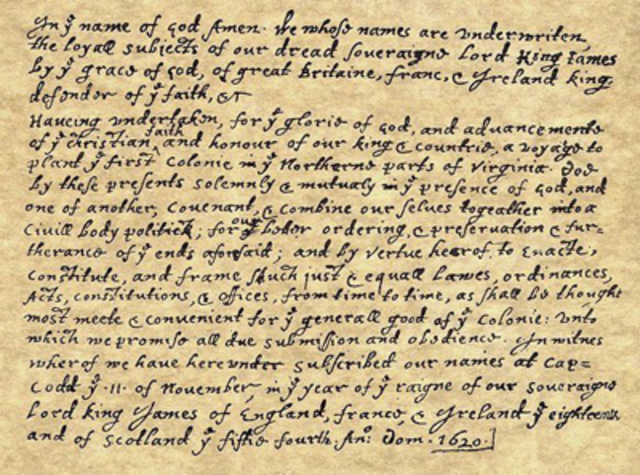 In yͤ name of god Amen. We whose names are underwriten,
the loyall subjects of our dread soveraigne Lord King James
by yͤ grace of god, of great Britaine, franc, & Ireland king,
defender of yͤ faith, &c
Haveing undertaken, for yͤ glorie of god, and advancemente
of yͤ christian faith and honour of our king & countrie, a voyage to
plant yͤ first colonie in yͤ Northerne parts of Virginia. doe
by these presents solemnly & mutualy in yͤ presence of god, and
one of another, covenant, & combine our selves togeather into a
civill body politick; for our yͤ better ordering, & preservation & fur=
therance of yͤ ends aforesaid; and by vertue hearof to enacte,
constitute, and frame such just & equall lawes, ordinances,
Acts, constitutions, & offices, from time to time, as shall be thought
most meete & convenient for yͤ generall good of yͤ Colonie: unto
which we promise all due submission and obedience. In witnes
wherof we have hereunder subscribed our names at Cap=
Codd yͤ .11. of November, in yͤ year of yͤ raigne of our soveraigne
Lord king James of England, france, & Ireland yͤ eighteenth
and of Scotland yͤ fiftie fourth. Anº: Dom. 1620.]